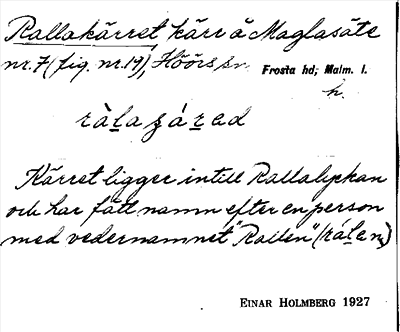 Rallakärret kärr å Maglasäte
nr. 7 (fig. nr. 19), Höörs sn. Frosta hd; Malm. l.
h.
ràlaʒáred
Kärret ligger intill Rallalyckan
och har fått namn efter en person
med vedernamnet "Rallen" (ràlen)
EINAR HOLMBERG 1927